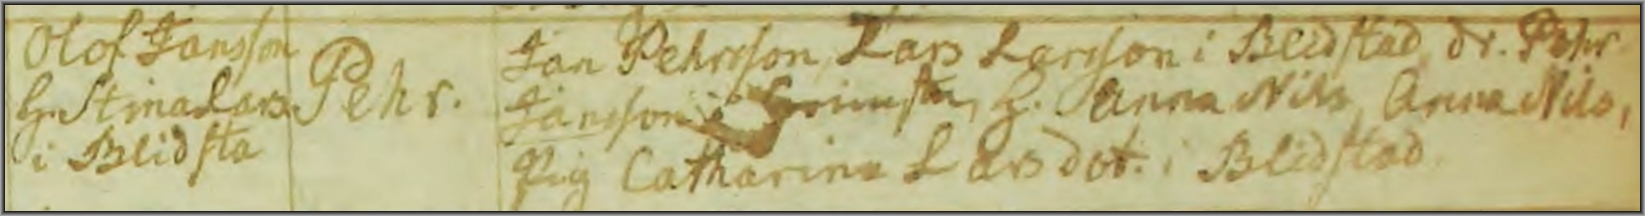 Olof Jansson
H. Stina Lars
i Blidsta
Pehr.
Jan Pehrsson, Lars Larsson i Blidstad, dr. Pehr
Jansson i H. Anna Nils, Anna Nils,
Pig Catharina Larsdot. i Blidstad.